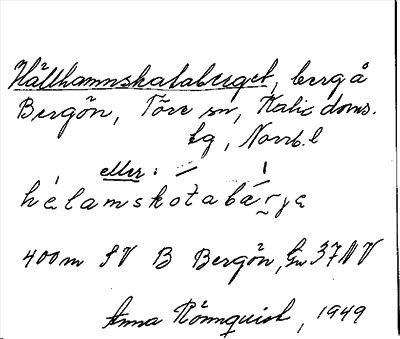 Hållhamnskalaberget, berg å
Bergön, Töre sn, Kalix doms.
lg, Norrb. l
eller:
hélamskotabárja
400m SV B Bergön, Gn 37 NV
Anna Rönnquist, 1949